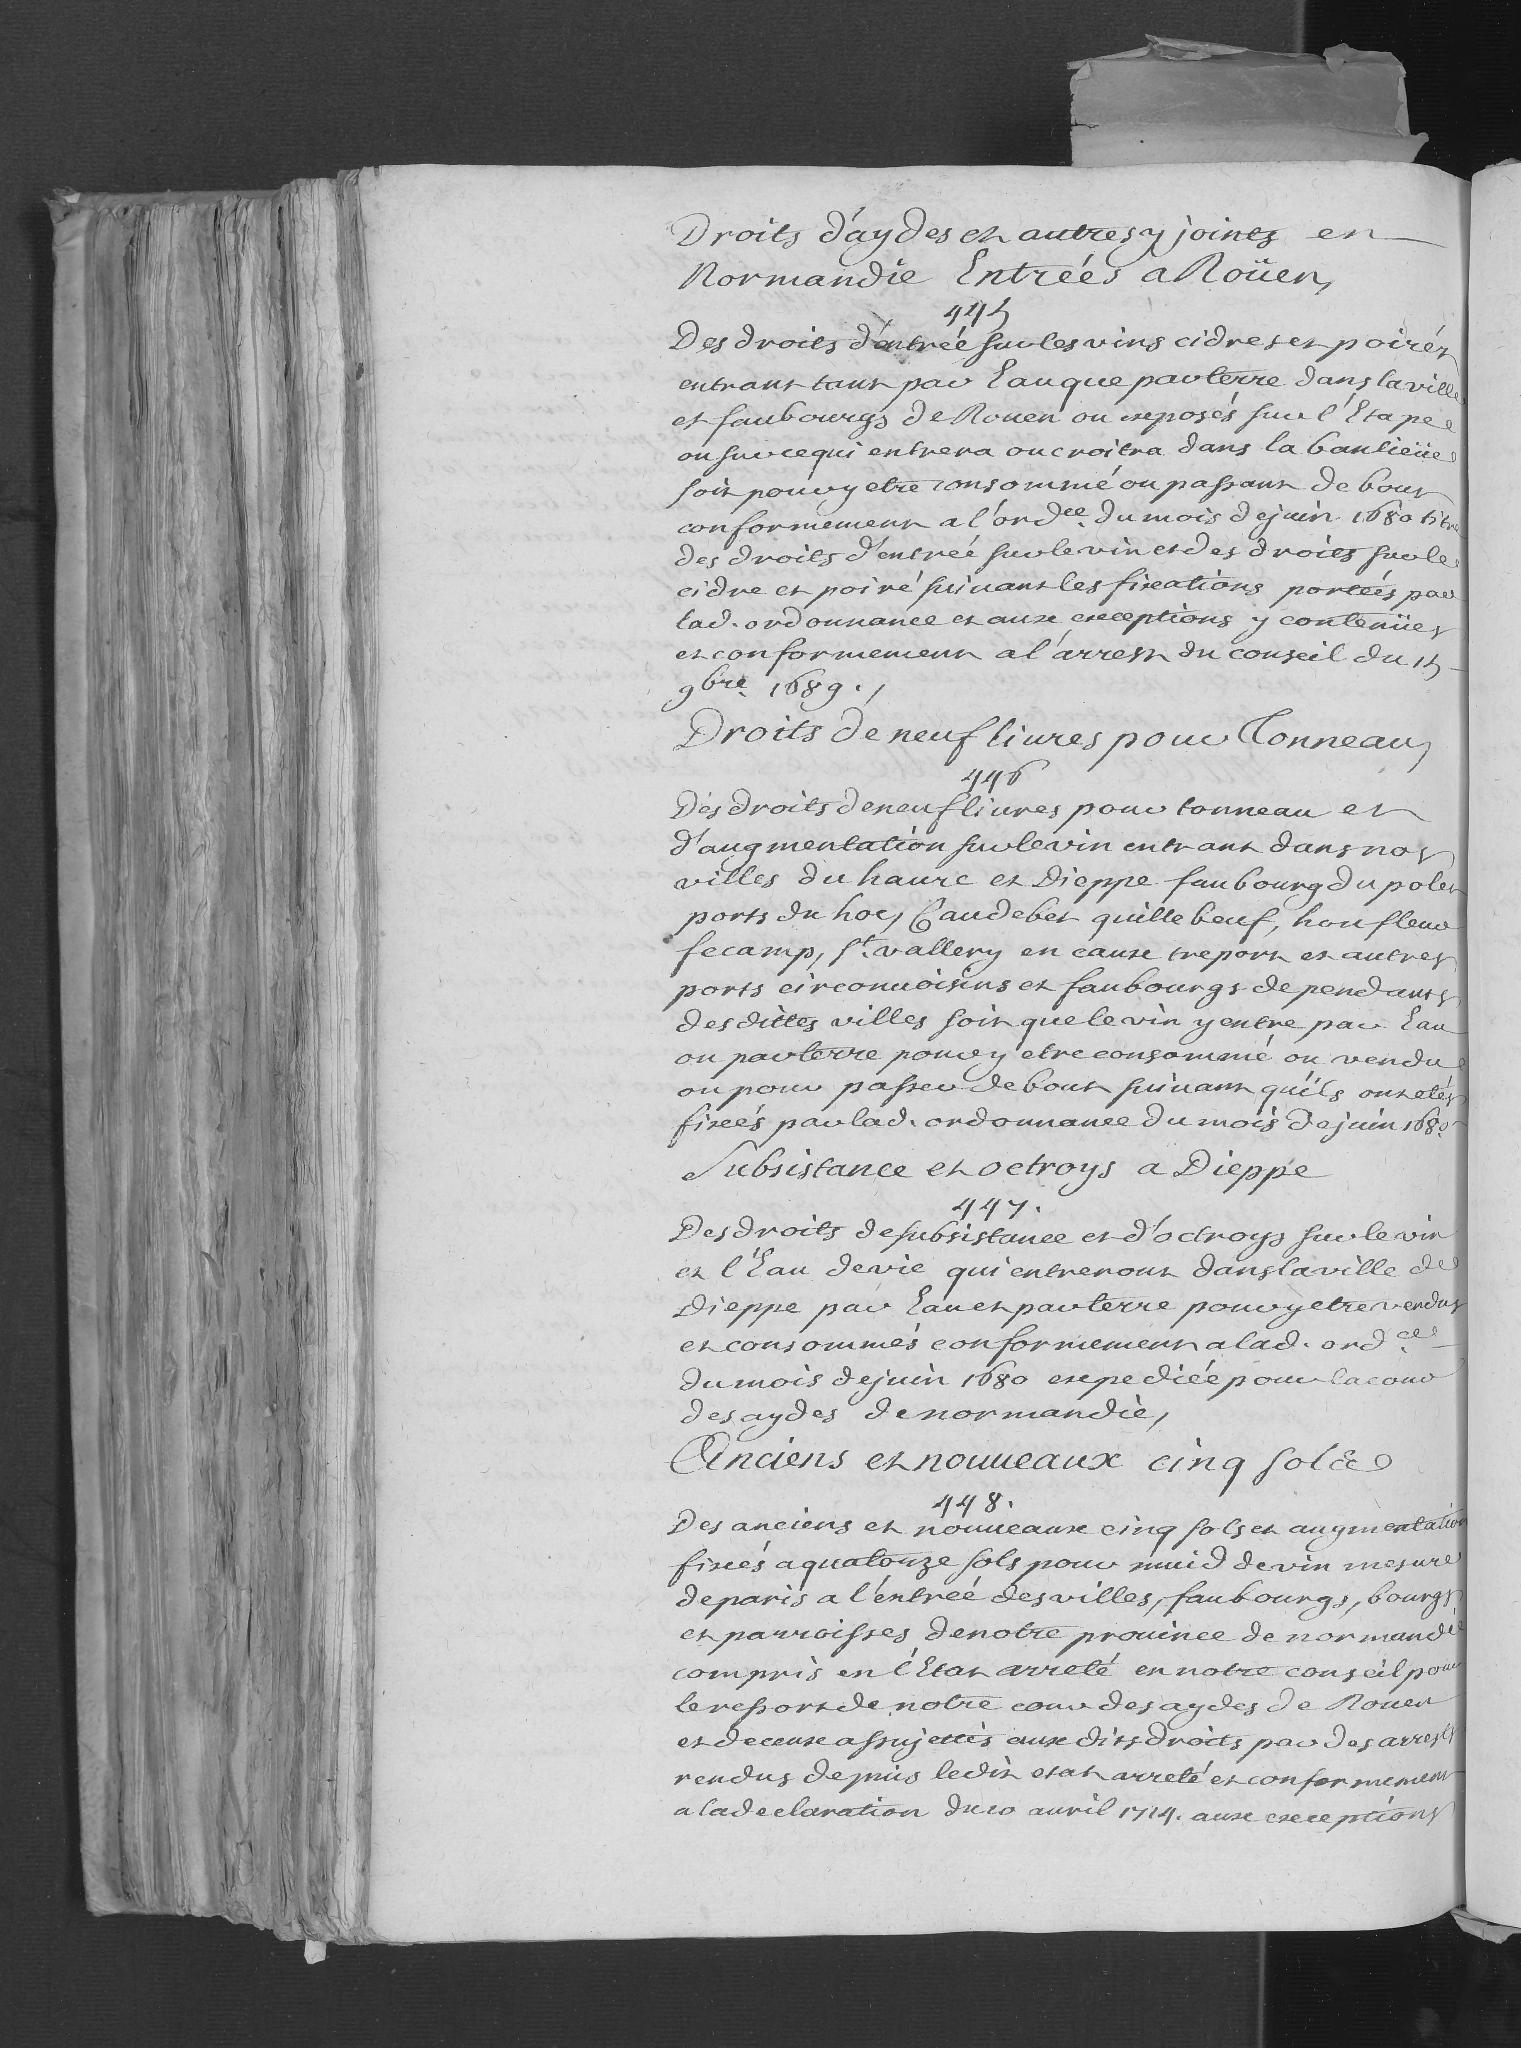 Droits d'aydes et autres y joints en
Normandie Entrées a Roüen,
445
Des droits d'entrée sur les vins cidres et poirés
entrant tant par Eau que par terre dans la ville
et faubourgs de Rouen ou exposés sur l'Etape
ou sur ce qui entrera ou croitra dans la banlieüe
soit pour y etre consommé ou passant de bout
conformement a l'ordce. du mois de juin 1680 titre
des droits d'entrée sur le vin et des droits sur le
cidre et poiré suivant les fixations portées par
lad. ordonnance et aux exceptions y contenües
et conformement a l'arrest du conseil du 15
9bre. 1689.,
Droits de neuf liures pour Tonneau,
446
Des droits de neuf liures pour tonneau et
d'augmentation sur le vin entrant dans nos
villes du haure et Dieppe faubourg du polet
ports du hoc, Caudebet quillebeuf, honfleur
fecamp, St. vallery en caux treport et autres
ports circonuoisins et faubourgs dependants
desdittes villes soit que le vin y entre par Eau
ou par terre pour y etre consommé ou vendu
ou pour passer debout suiuant qu'ils ont etés
fixés par lad. ordonnance du mois de juin 1680
Subsistance et octroys a Dieppe
447.
Des droits de subsistance et d'octroys sur le vin
et l'Eau de vie qui entreront dans la ville de
Dieppe par Eau et par terre pour y etre vendus
et consommés conformement a lad. ordce.
du mois de juin 1680 expediée pour la cour
des aydes de normandie,
Anciens et nouueaux cinq sols
448.
Des anciens et nouueaux cinq sols et augmentation
fixés a quatorze sols pour muid de vin mesure
de paris a l'entrée des villes, faubourgs, bourgs
et parroisses de notre prouince de normandie
compris en l'Etat arreté en notre conseil pour
le ressort de notre cour des aydes de Rouen
et de ceux assujettis aux dits droits par des arrests
rendus depuis ledit etat arreté et conformement
a la declaration du 10 auril 1714. aux exceptions